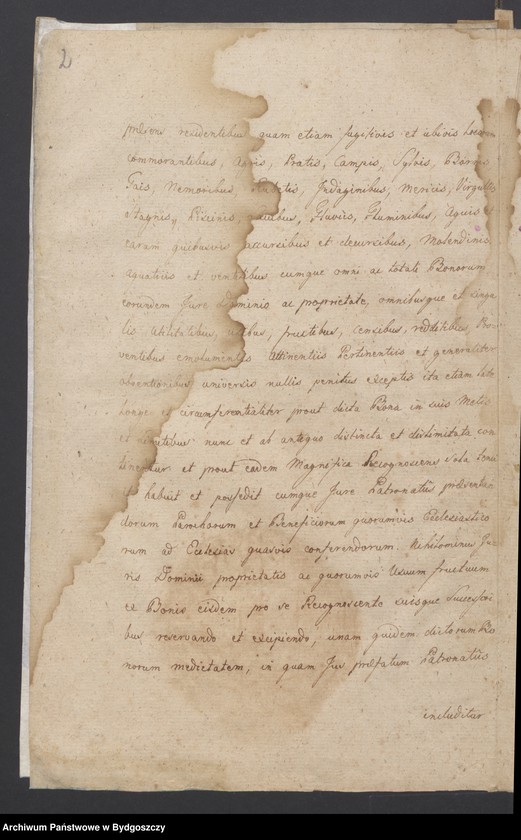 2
residentibus quam etiam fugitivis et ubivis locorum
commorantibus, Agris, Pratis, Campis, Sylvis, Borris
Gais, Nemoribus, Indaginibus, Mericis, Virgultis
Stagnis, Piscinis, Fluviis, Fluminibus, Aquis et
earum quibusvis accursibus et decursibus, Molendinis
aquaticis et ventilibus cumque omni ac totali Bonorum
eorundem Jure Dominio ac proprietate, omnibusque et singu
lis utilitatibus, usibus, fructibus, censibus, redditibus, Pro
ventibus emolumentis Attinentiis Pertinentiis et generaliter
obventionibus universis nullis penitus exceptis ita etiam late
longe et circumferentialiter prout dicta Bona in suis Metis
et limitibus nunc et ab antiquo distincta et distimitata con
tinentur et prout eadem Magnifica Recognoscens sola tenu
it habuit et possedit cumque Jure Patronatus praesentan
dorum Parochorum et Beneficiorum quorumvis Ecclesiastico
rum ad Ecclesias quasvis conferendorum. Nihilominus Ju
ris Dominii proprietatis ac quorumvis Usuum fructuum
ex Bonis eisdem pro se Recognoscente suisque Successori
bus reservando et excipiendo, unam quidem dictorum Bo
norum medietatem, in quam Jus praefatum Patronatus
includitur
Archiwum Państwowe w Bydgoszczy